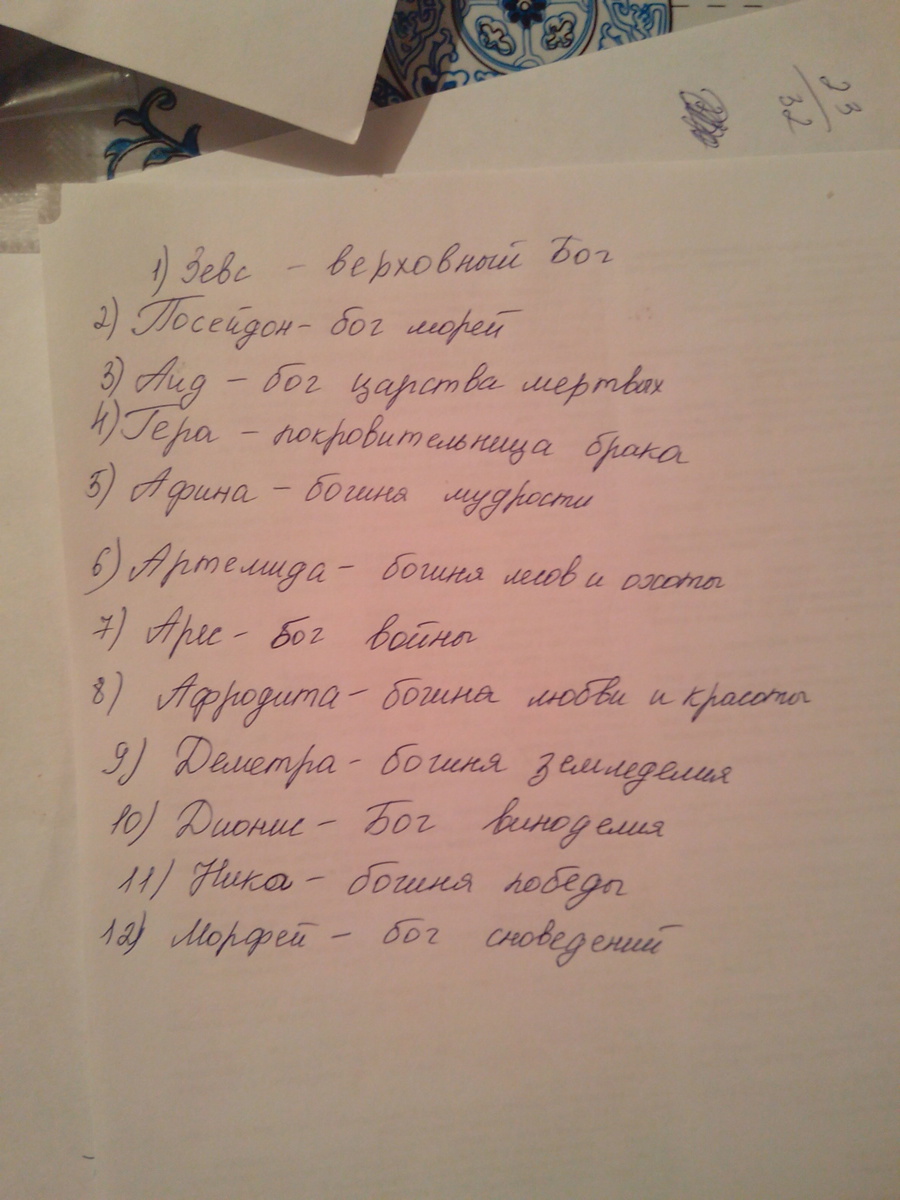 23
32
1) Зевс - верховный Бог
2) Посейдон - бог морей
3) Аид - бог царства мертвых
4) Гера - покровительница брака
5) Афина - богиня мудрости
6) Артемида - богиня лесов и охоты
7) Арес - Бог войны
8) Афродита - богиня любви и красоты
9) Деметра - богиня земледелия
10) Дионис - Бог виноделия
11) Ника - богиня победы
12) Морфей - бог сноведений